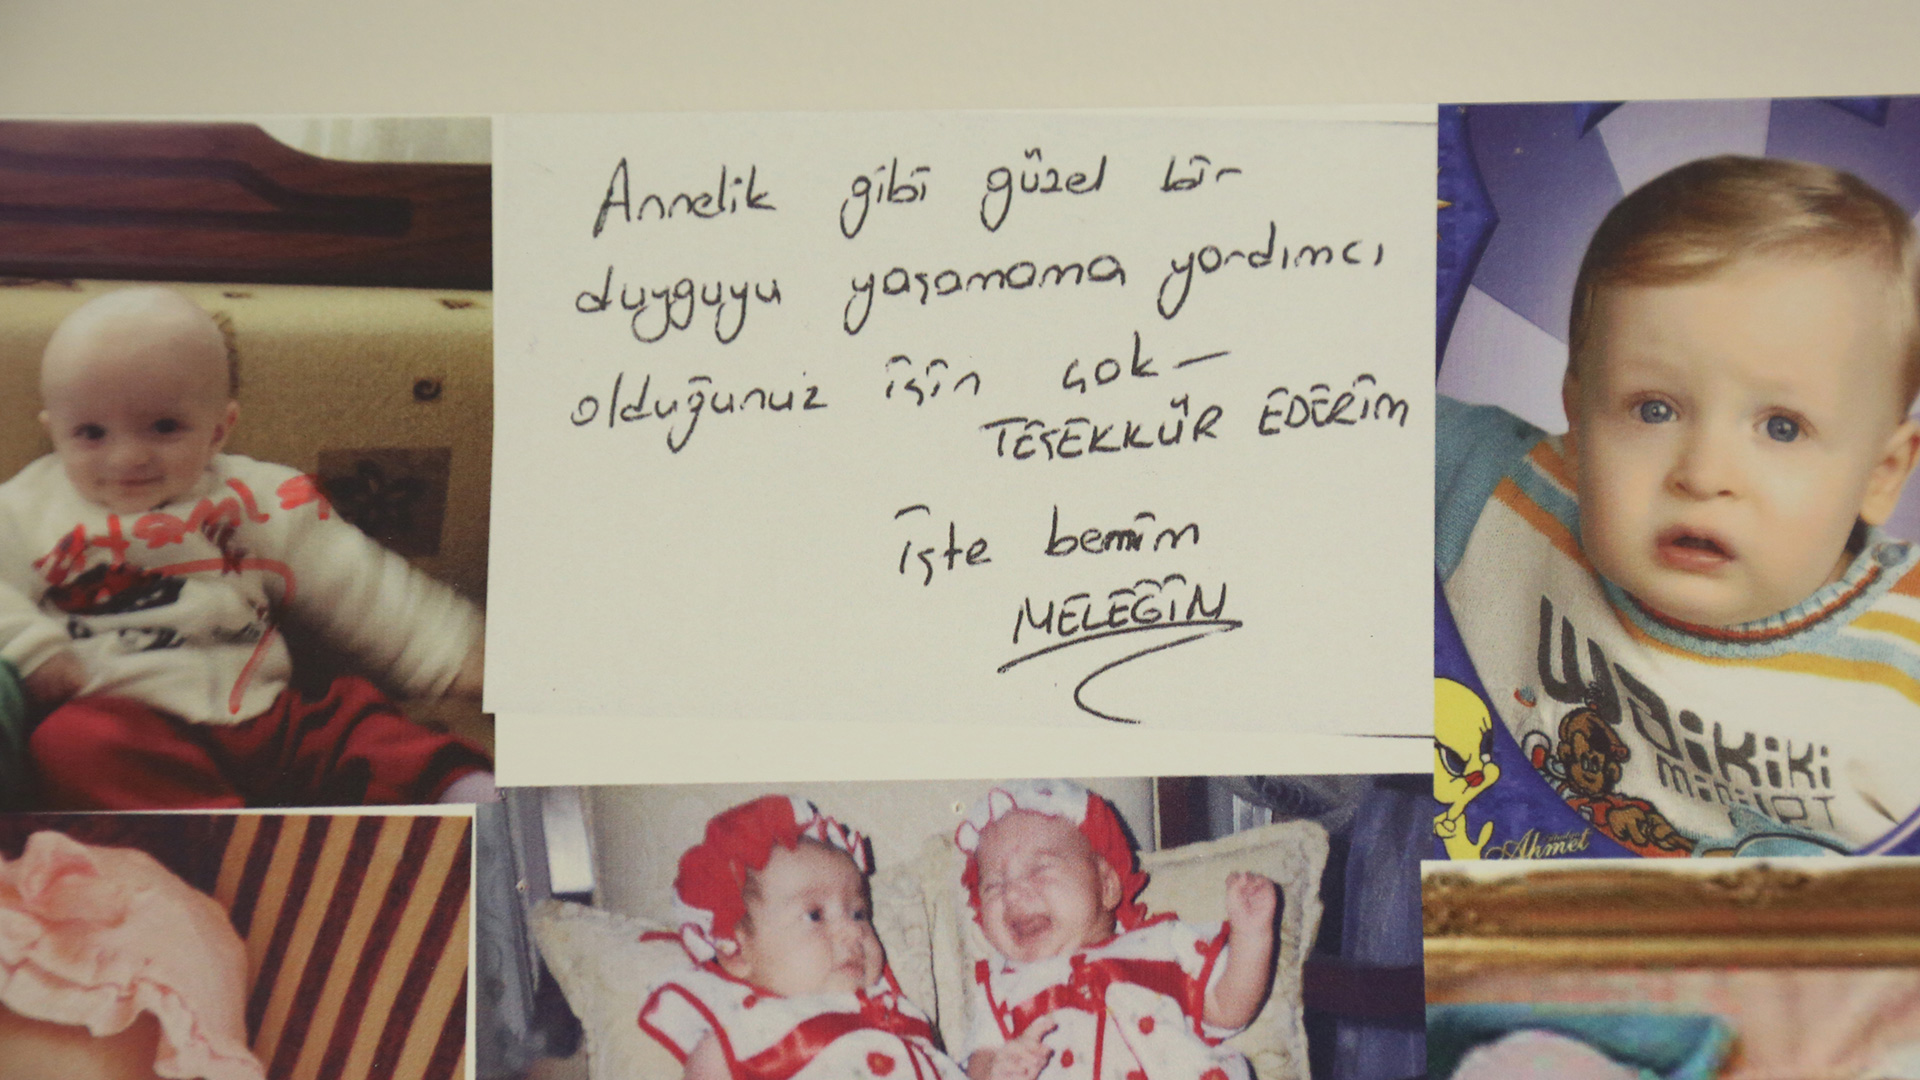 Annelik gibi güzel bir
duyguyu yaşamama yardımcı
olduğunuz için çok
TEŞEKKÜR EDERİM
işte benim
MELEĞİM
Waikiki
Ahmet